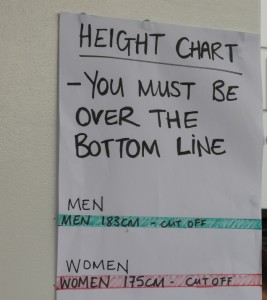 HEIGHT CHART
- YOU MUST BE
OVER THE
BOTTOM LINE
MEN
MEN 183CM - CUT OFF
WOMEN
WOMEN 175CM - CUT OFF